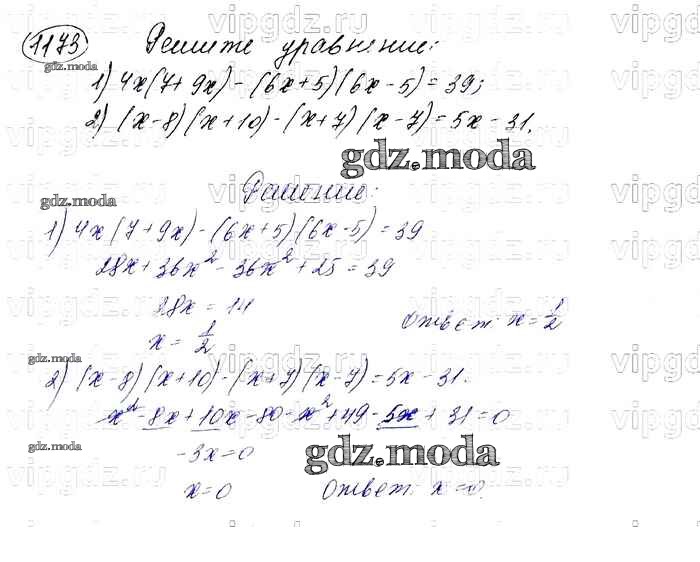 1173 Решите уравнение:
1) 4x(7+9x) - (6x+5)(6x-5) = 39;
2) (x-8)(x+10) - (x+7)(x-7) = 5x - 31.
Решение:
1) 4x(7+9x) - (6x+5)(6x-5) = 39
28x + 36x² - 36x² + 25 = 39
28x = 14
x = 1/2
Ответ: x = 1/2
2) (x-8)(x+10) - (x+7)(x-7) = 5x - 31.
x² - 8x + 10x - 80 - x² + 49 - 5x + 31 = 0
-3x = 0
x = 0 Ответ: x = 0.
gdz.moda
gdz.moda
gdz.moda
gdz.moda
gdz.moda
gdz.moda
vipgdz.ru